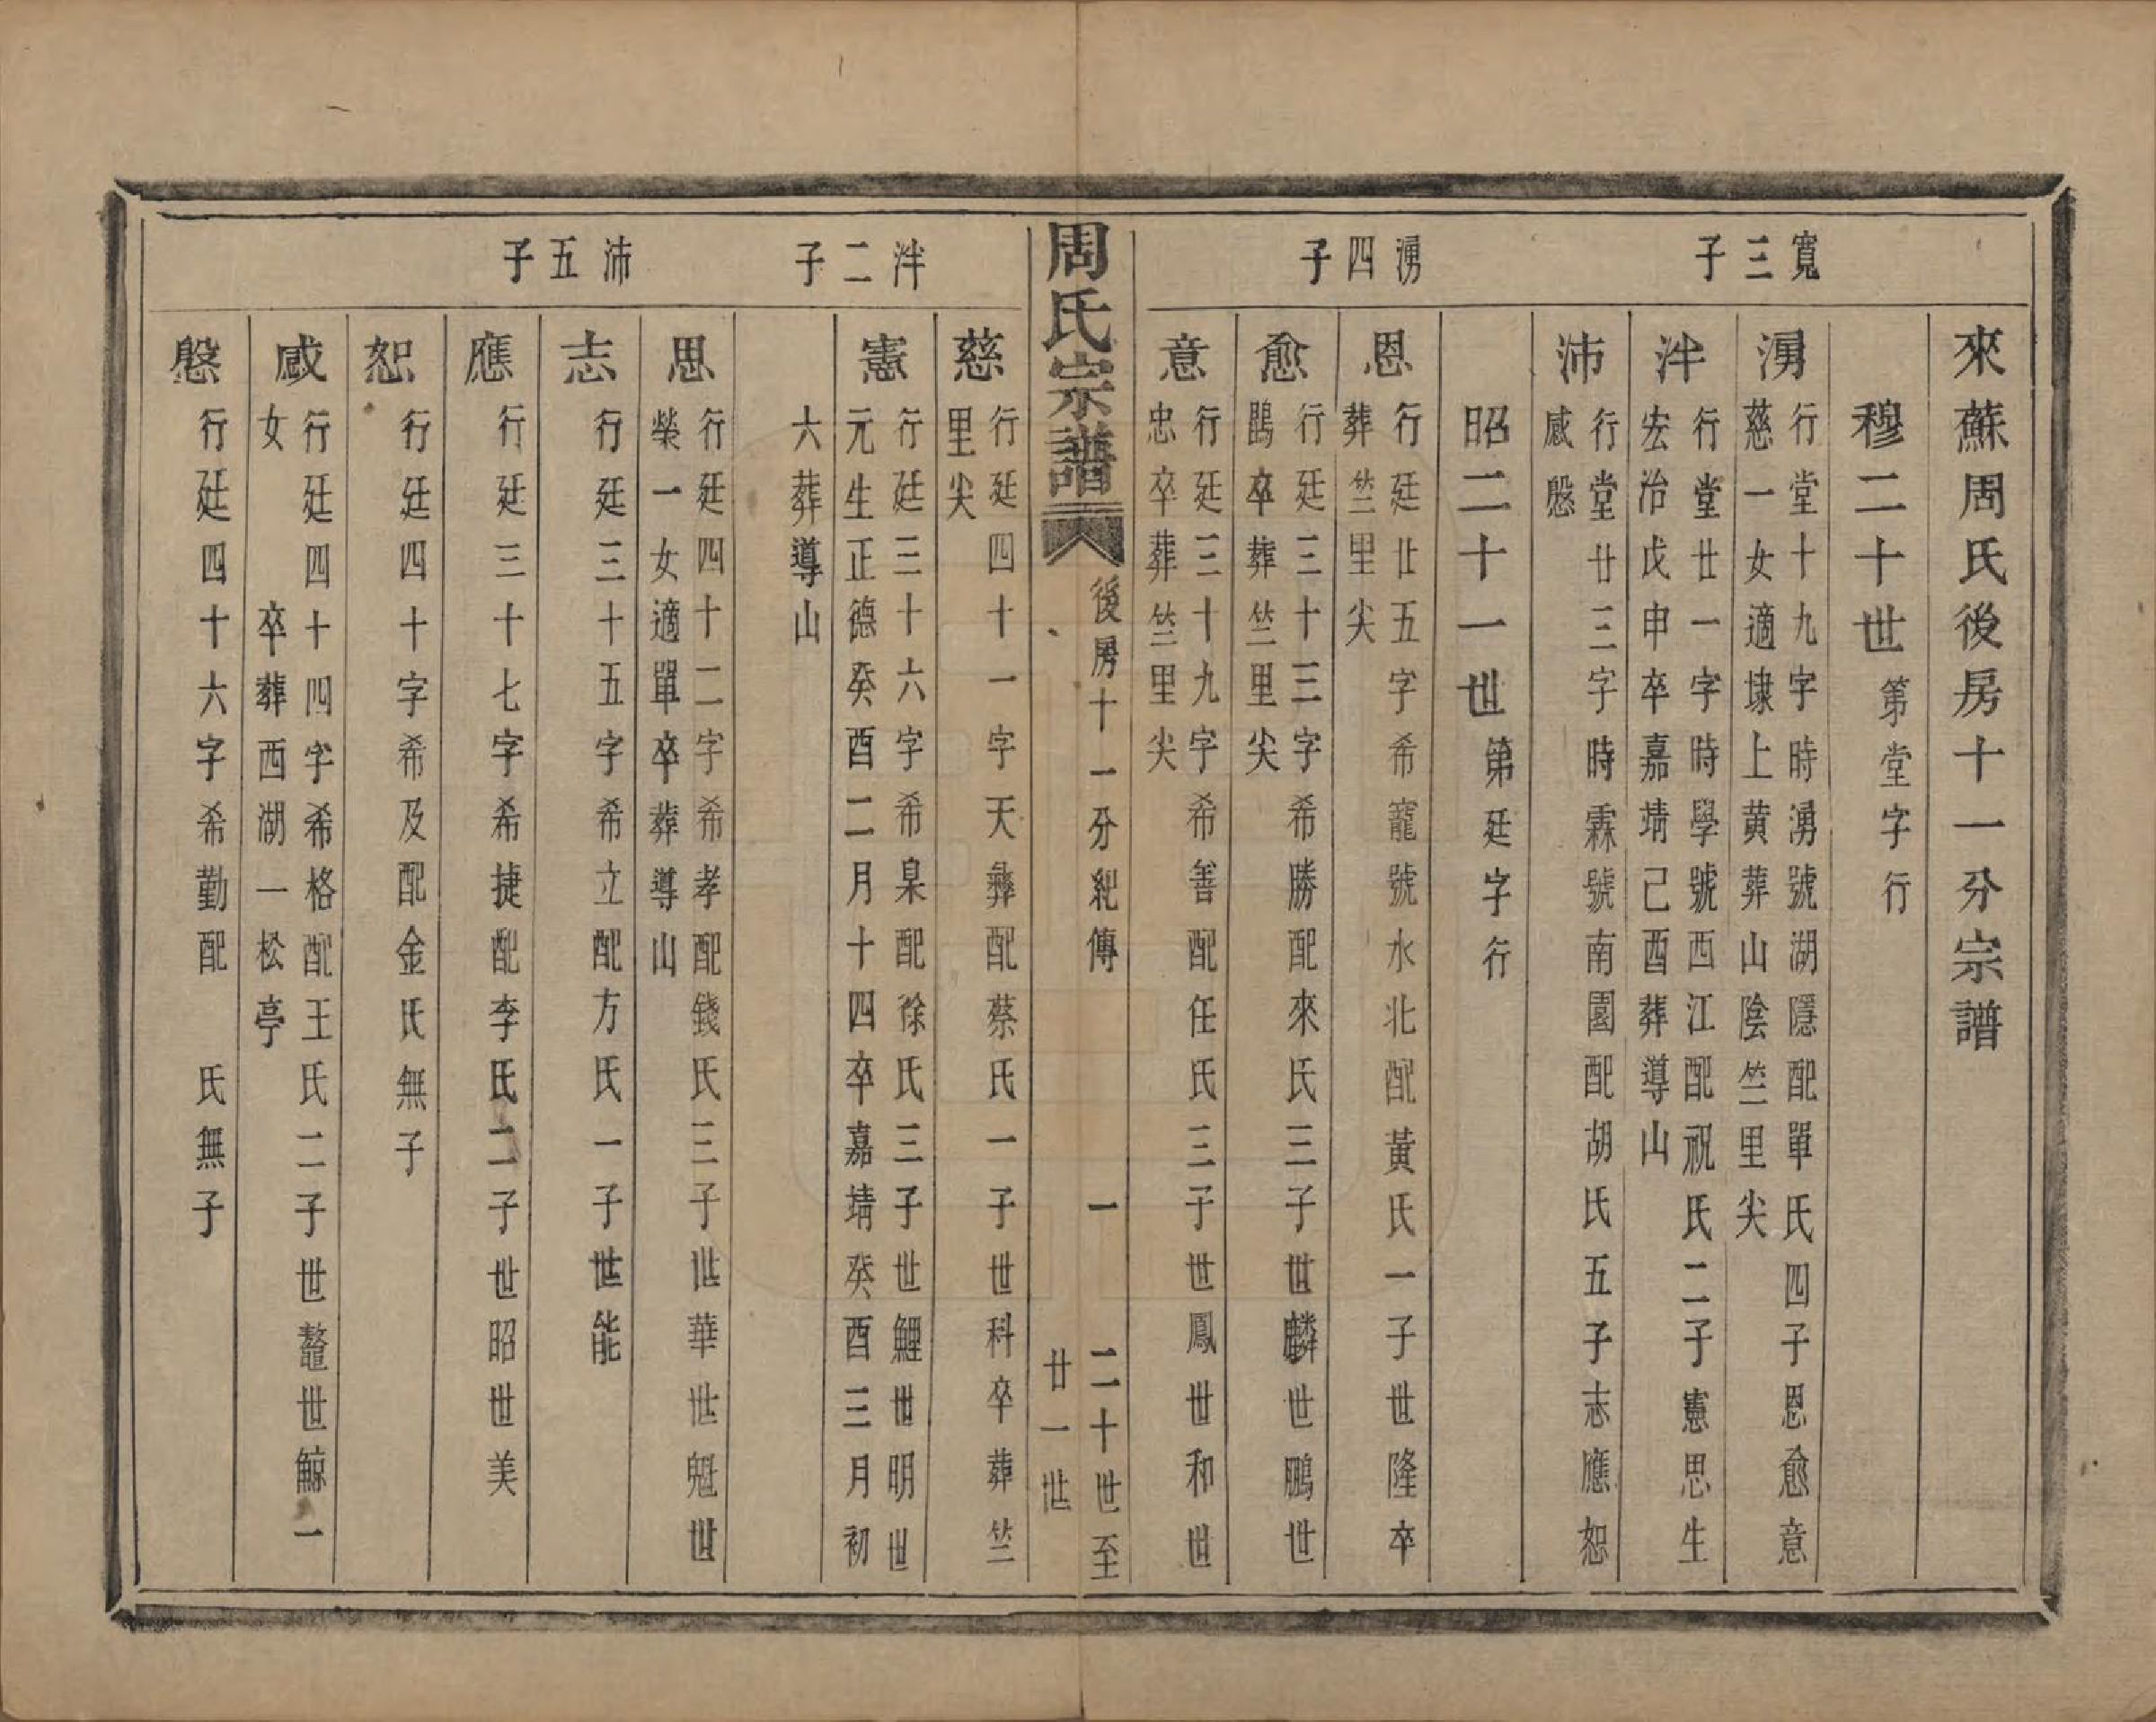 來蘇周氏後房十一分宗譜
穆二十世第堂字行
寬三子
湧
行堂十九字時湧號湖隱配單氏四子恩愈意
慈一女適埭上黄葬山陰竺里尖
泮
行堂廿一字時學號西江配祝氏二子憲思生
宏治戊申卒嘉靖己酉葬導山
沛
行堂廿三字時霖號南園配胡氏五子志應恕
感慇
昭二十一世第廷字行
湧四子
恩
行廷廿五字希寵號水北配黃氏一子世隆卒
葬竺里尖
愈
行廷三十三字希勝配來氏三子世麟世鵬世
鵾卒葬竺里尖
意
行廷三十九字希善配任氏三子世鳳世和世
忠卒葬竺里尖
周氏宗譜
後房十一分紀傳
一
二十世至
廿一世
慈
行廷四十一字天彝配蔡氏一子世科卒葬竺
里尖
泮二子
憲
行廷三十六字希臯配徐氏三子世鯉世明世
元生正德癸酉二月十四卒嘉靖癸酉三月初
六葬導山
思
行廷四十二字希孝配錢氏三子世華世魁世
榮一女適單卒葬導山
沛五子
志
行廷三十五字希立配方氏一子世能
應
行廷三十七字希捷配李氏二子世昭世美
恕
行廷四十字希及配金氏無子
感
行廷四十四字希格配王氏二子世鼇世鯨一
女 卒葬西湖一松亭
慇
行廷四十六字希勤配 氏無子